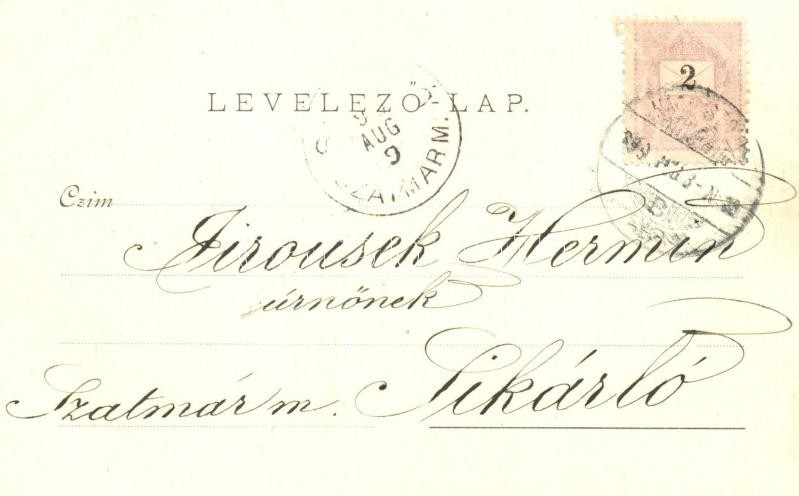 LEVELEZŐ-LAP.
2
AUG
9
SZATMÁRM.
Czim
Jirousek Hermin
úrnőnek
Szatmár m. Sikárló